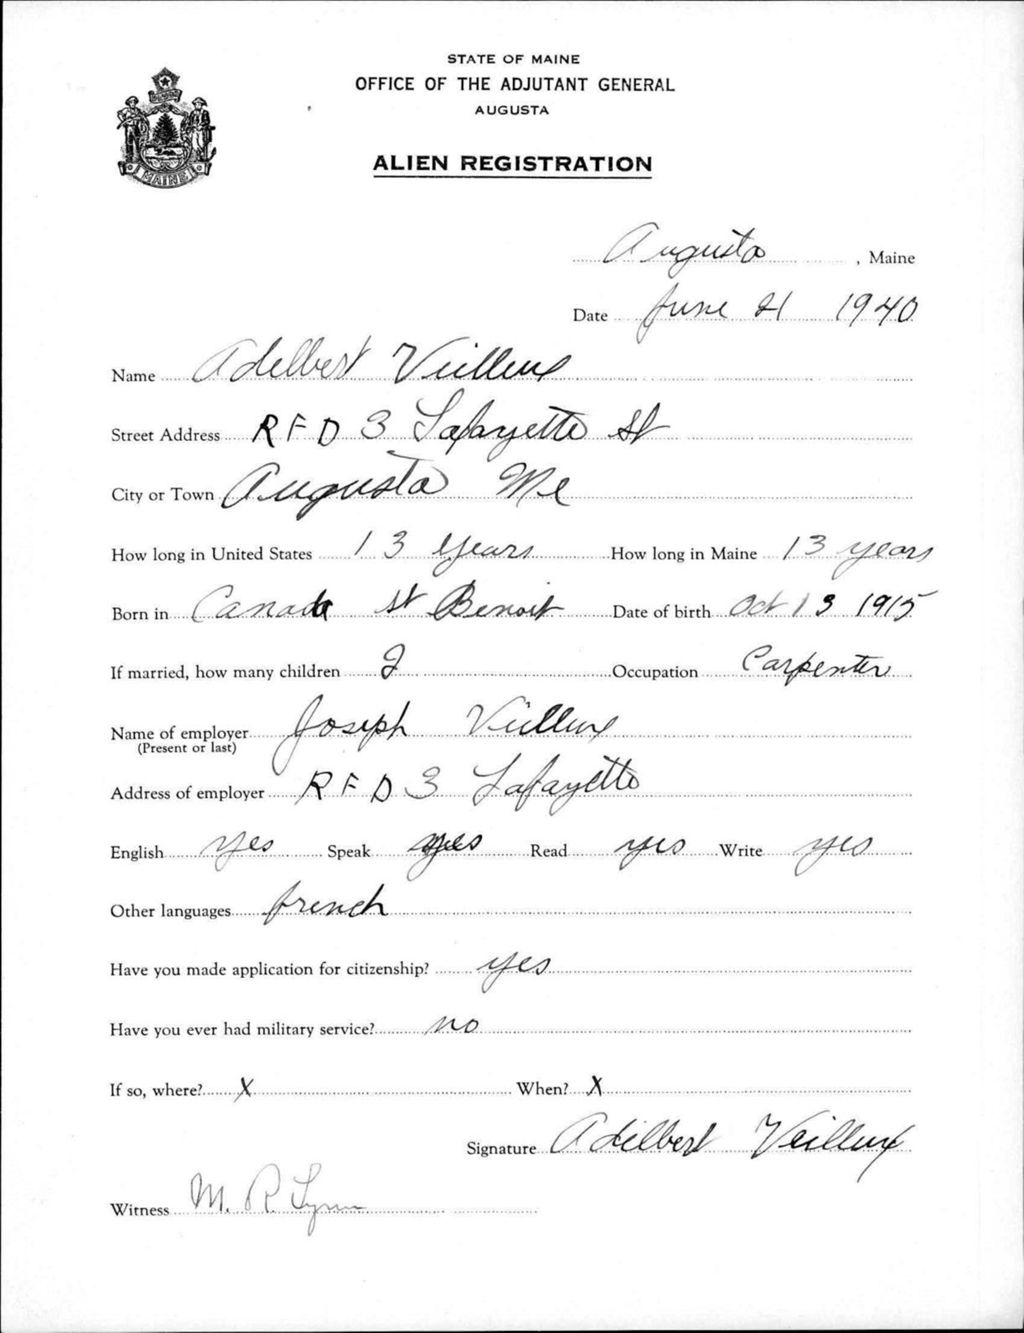 STATE OF MAINE
OFFICE OF THE ADJUTANT GENERAL
AUGUSTA
ALIEN REGISTRATION
MAINE
Augusta, Maine
Date June 21 1940
Name Adelbert Veilleux
Street Address R F D 3 Lafayette St
City or Town Augusta Me
How long in United States 13 years How long in Maine 13 years
Born in Canada St Benoit Date of birth Oct 13 1915
If married, how many children 2 Occupation Carpenter
Name of employer Joseph Veilleux
(Present or last)
Address of employer R F D 3 Lafayette
English yes Speak yes Read yes Write yes
Other languages french
Have you made application for citizenship? yes
Have you ever had military service? no
If so, where? X When? X
Signature Adelbert Veilleux
Witness M. R. Lynn